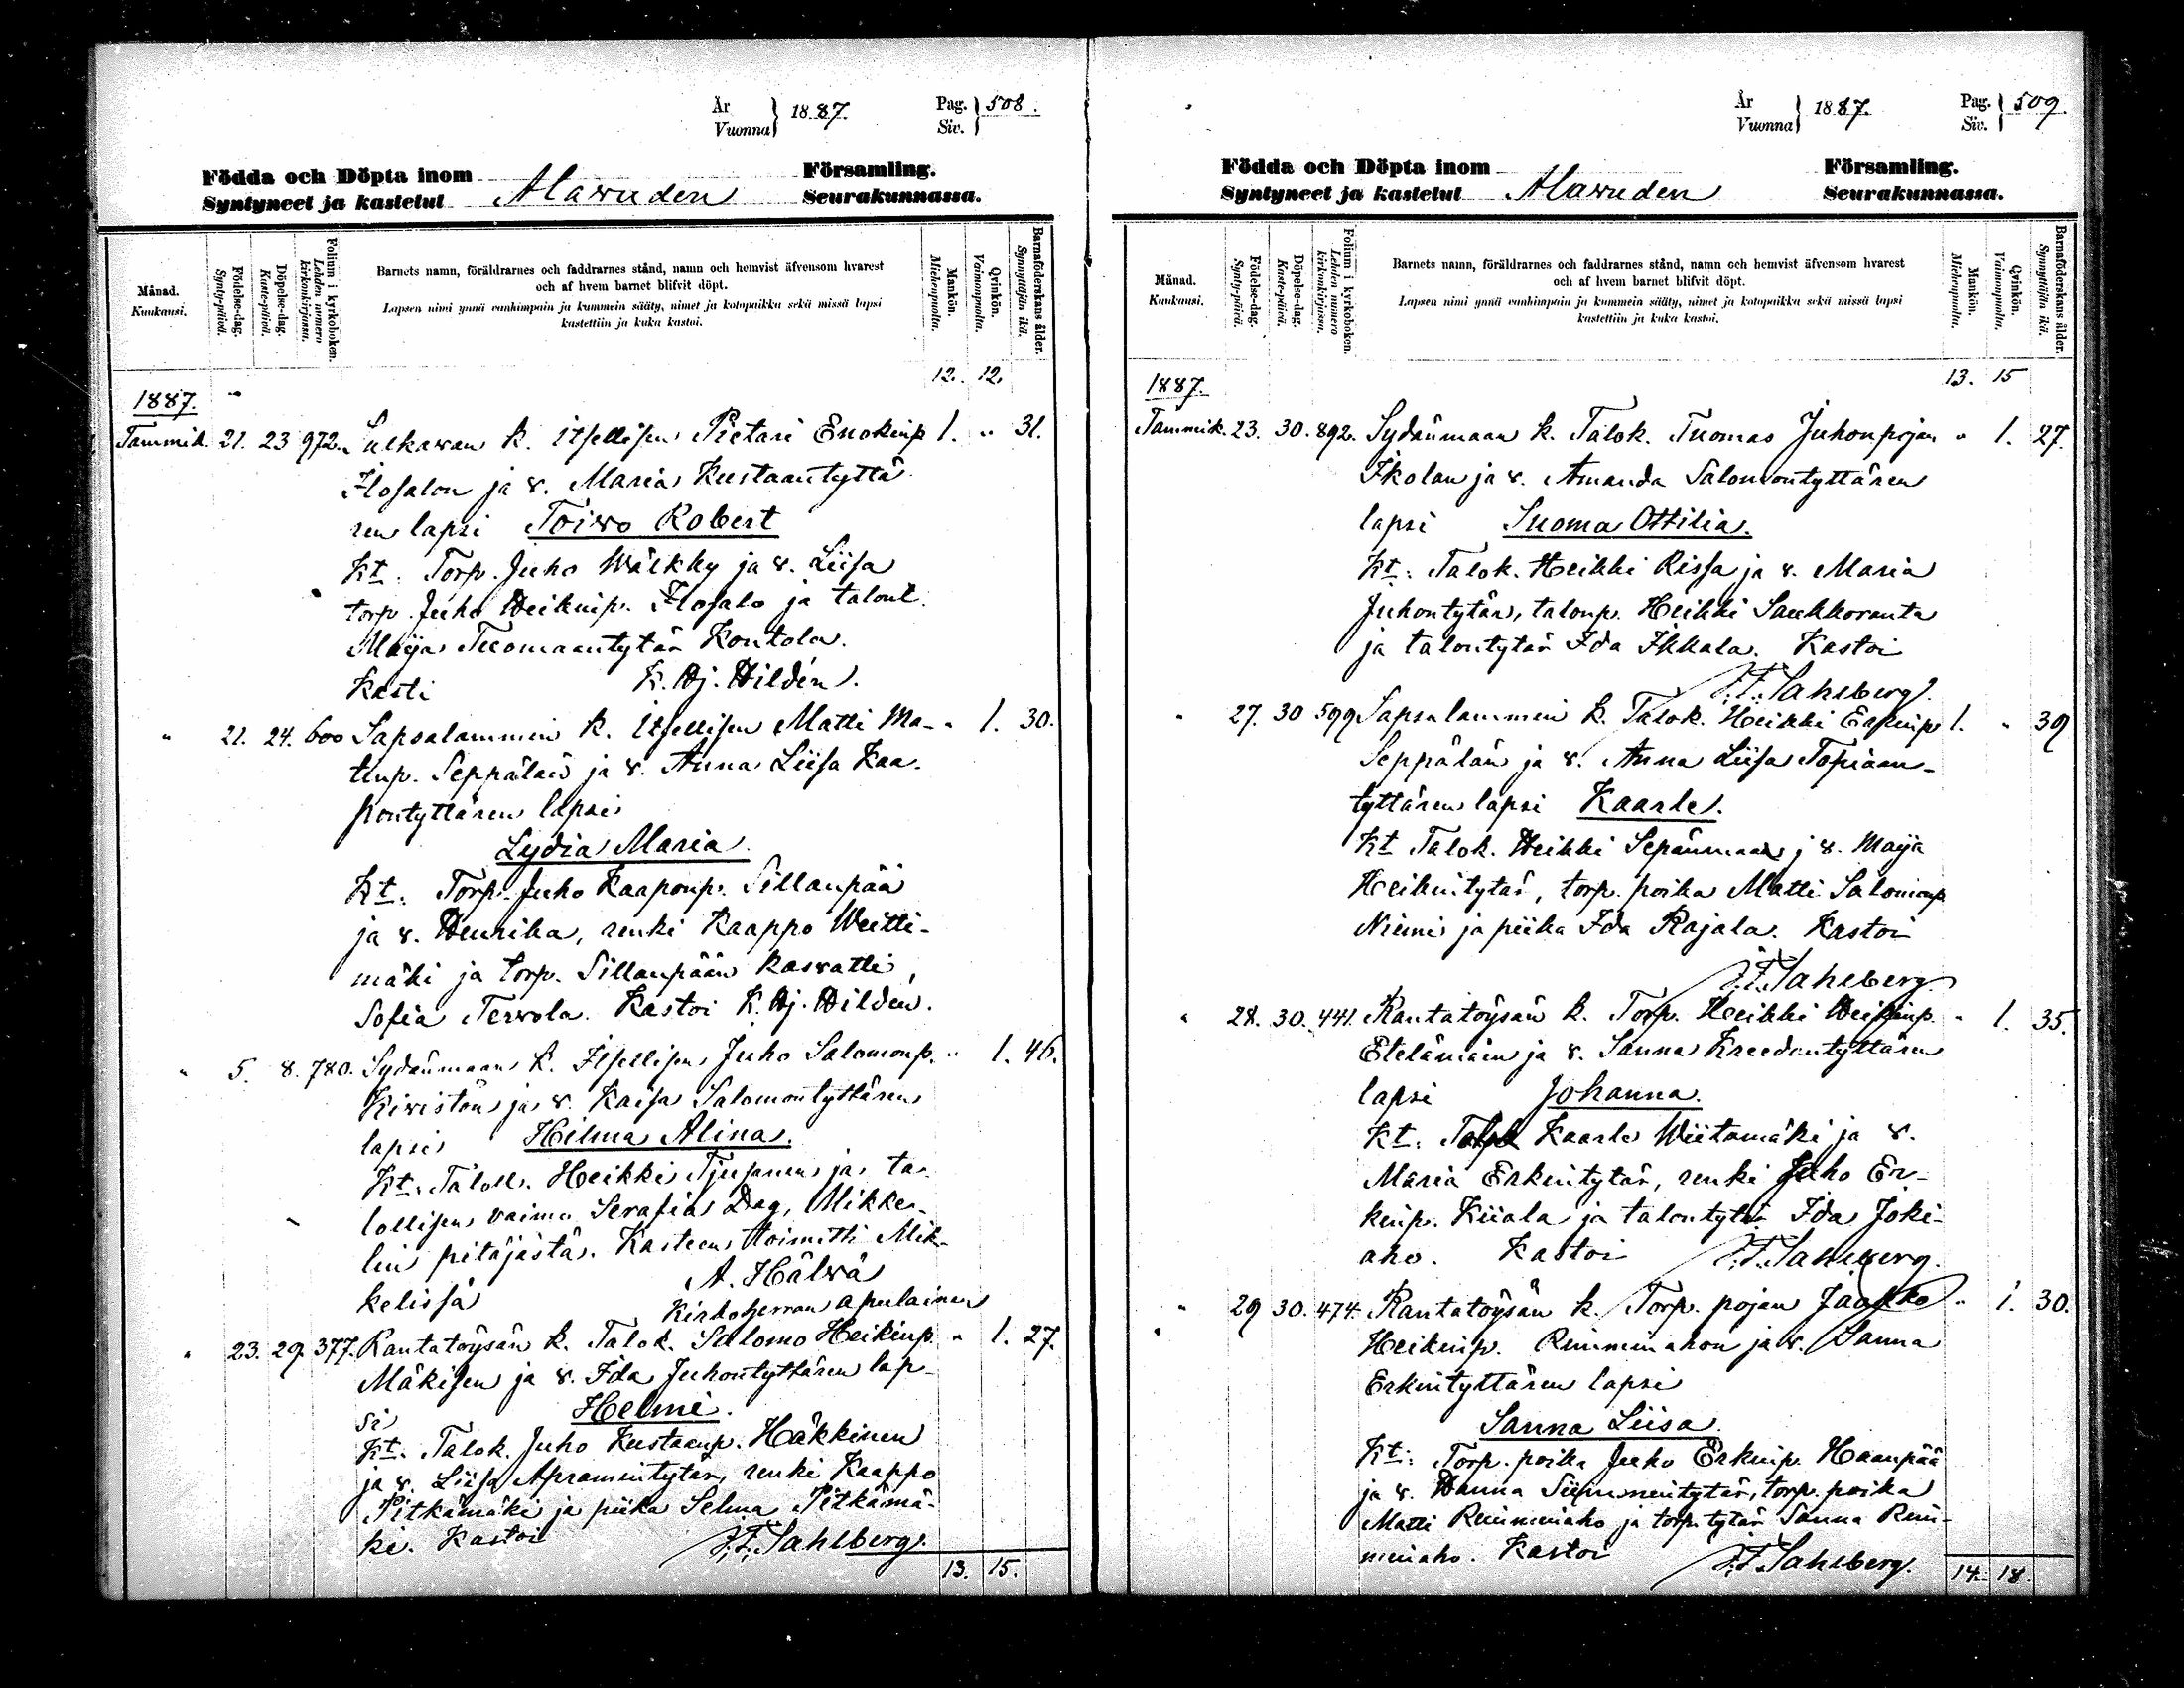 År
Vuonna } 1887.
Pag.
Siv. } 508.
Födda och Döpta inom
Syntyneet ja kastetut Alawuden
Församling.
Seurakunnassa.
Månad.
Kuukausi.
Födelse-dag.
Synty-päivä.
Döpelse-dag.
Kaste-päivä.
Folium i kyrkoboken.
Lehden numero kirkonkirjassa.
Barnets namn, föräldrarnes och faddrarnes stånd, namn och hemvist äfvensom hvarest
och af hvem barnet blifvit döpt.
Lapsen nimi ynnä vanhimpain ja kummein sääty, nimet ja kotopaikka sekä missä lapsi
kastettiin ja kuka kastoi.
Mankön.
Miehenpuolta.
Qvinkön.
Vaimonpuolta.
Barnaföderskans ålder.
Synnyttäjän ikä.
12. 12.
1887.
Tammik. 21. 23 972. Sulkawan k. itsellisen Pietari Enokinp 1. " 31.
Ilosalon ja v. Maria Kustaantyttä
ren lapsi Toiwo Robert
Kt. Torp. Juho Wälkky ja v. Liisa
torp. Juho Heikinp. Ilosalo ja talont.
Maija Tuomaantytär Kontola.
Kasti K. Hj. Hildén.
" 21. 24. 600 Sapsalammin k. itsellisen Matti Ma- " 1. 30.
tinp. Seppälän ja v. Anna Liisa Kaa-
pontyttären lapsi
Lydia Maria.
Kt. Torp. Juho Kaaponp. Sillanpää
ja v. Henrika, renki Kaappo Weitti-
mäki ja torp. Sillanpään kasvatti,
Sofia Terwola. Kastoi K. Hj. Hildén.
" 5. 8. 780. Sydänmaan k. Itsellisen Juho Salomonp. " 1. 46.
Kiwistön ja v. Kaisa Salomontyttären
lapsi Hilma Alina.
Kt. Talok. Heikki ja ta-
lollisen vaimo Serafia Dag, Mikke-
lin pitäjästä. Kasteen toimitti Mik-
kelissä A. Hälvä
Kirkoherran apulainen
" 23. 29. 377. Rantatöysän k. Talok. Salomo Heikinp. " 1. 27.
Mäkisen ja v. Ida Juhontyttären lap-
si Helmi.
Kt. Talok. Juho Kustaanp. Häkkinen
ja v. Liisa Apramintytär, renki Kaappo
Pitkämäki ja piika Selma Pitkämä-
ki. Kastoi J. F. Sahlberg.
13. 15.
År
Vuonna } 1887.
Pag.
Siv. } 509.
Födda och Döpta inom
Syntyneet ja kastetut Alawuden
Församling.
Seurakunnassa.
Månad.
Kuukausi.
Födelse-dag.
Synty-päivä.
Döpelse-dag.
Kaste-päivä.
Folium i kyrkoboken.
Lehden numero kirkonkirjassa.
Barnets namn, föräldrarnes och faddrarnes stånd, namn och hemvist äfvensom hvarest
och af hvem barnet blifvit döpt.
Lapsen nimi ynnä vanhimpain ja kummein sääty, nimet ja kotopaikka sekä missä lapsi
kastettiin ja kuka kastoi.
Mankön.
Miehenpuolta.
Qvinkön.
Vaimonpuolta.
Barnaföderskans ålder.
Synnyttäjän ikä.
13. 15
1887.
Tammik. 23. 30. 892. Sydänmaan k. Talok. Tuomas Juhonpojan " 1. 27.
Ikolan ja v. Amanda Salomontyttären
lapsi Suoma Ottilia.
Kt: Talok. Heikki Rissa ja v. Maria
Juhontytär, talonp. Heikki Saukkoranta
ja talontytär Ida Ikkala. Kastoi
J. F. Sahlberg.
" 27. 30 599 Sapsalammin k. Talok. Heikki Erkinp 1. " 39
Seppälän ja v. Anna Liisa Topiaan-
tyttären lapsi Kaarle.
Kt Talok. Heikki Sepänmaa j v. Maija
Heikintytär, torp. poika Matti Salomonp
Niemi ja piika Ida Rajala. Kastoi
J. F. Sahlberg
" 28. 30. 441. Rantatöysän k. Torp. Heikki Heikinp. " 1. 35.
Etelämäen ja v. Sanna Kreedantyttären
lapsi Johanna.
Kt: Kaarle Wiitamäki ja v.
Maria Erkintytär, renki Juho Er-
kinp. Kiiala ja talontytär Ida Joki-
aho. Kastoi J. F. Sahlberg.
" 29 30. 474. Rantatöysän k. Torp. pojan Jaakko " 1. 30.
Heikinp. Rinminahon ja v. Sanna
Erkintyttären lapsi
Sanna Liisa
Kt: Torp. poika Juho Erkinp. Haanpää
ja v. Hanna torp. poika
Matti Rinminaho ja torp. tytär Sanna Rin-
minaho. Kastoi J. F. Sahlberg.
14. 18.